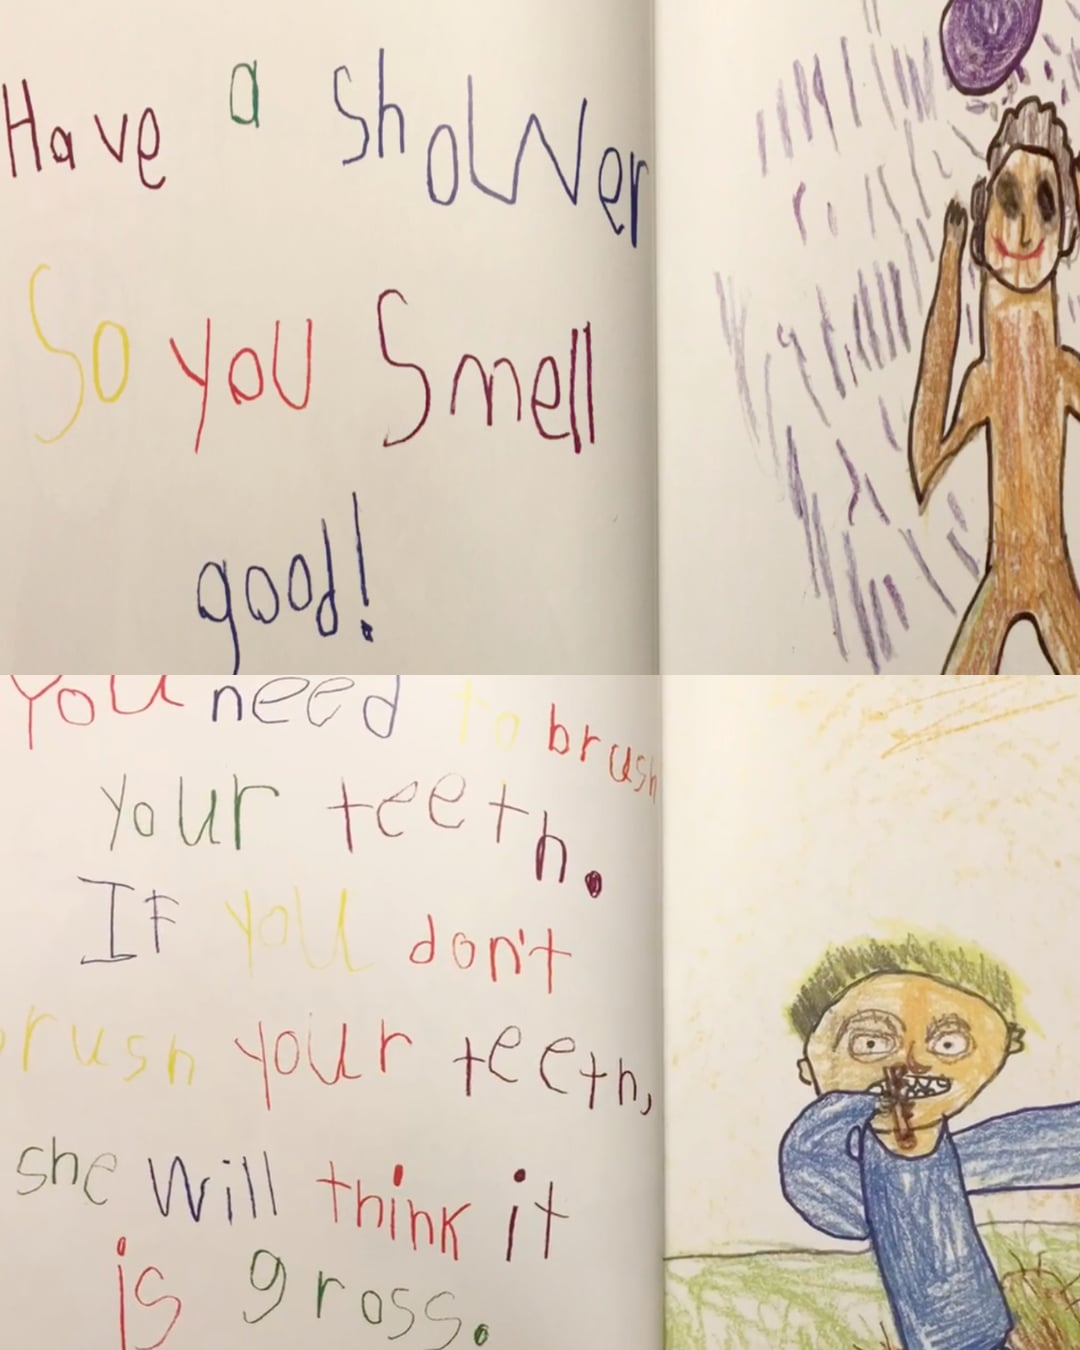 Have a Shower
So you Smell
good!
You need to brush
your teeth.
If you don't
brush your teeth,
she will think it
is gross.